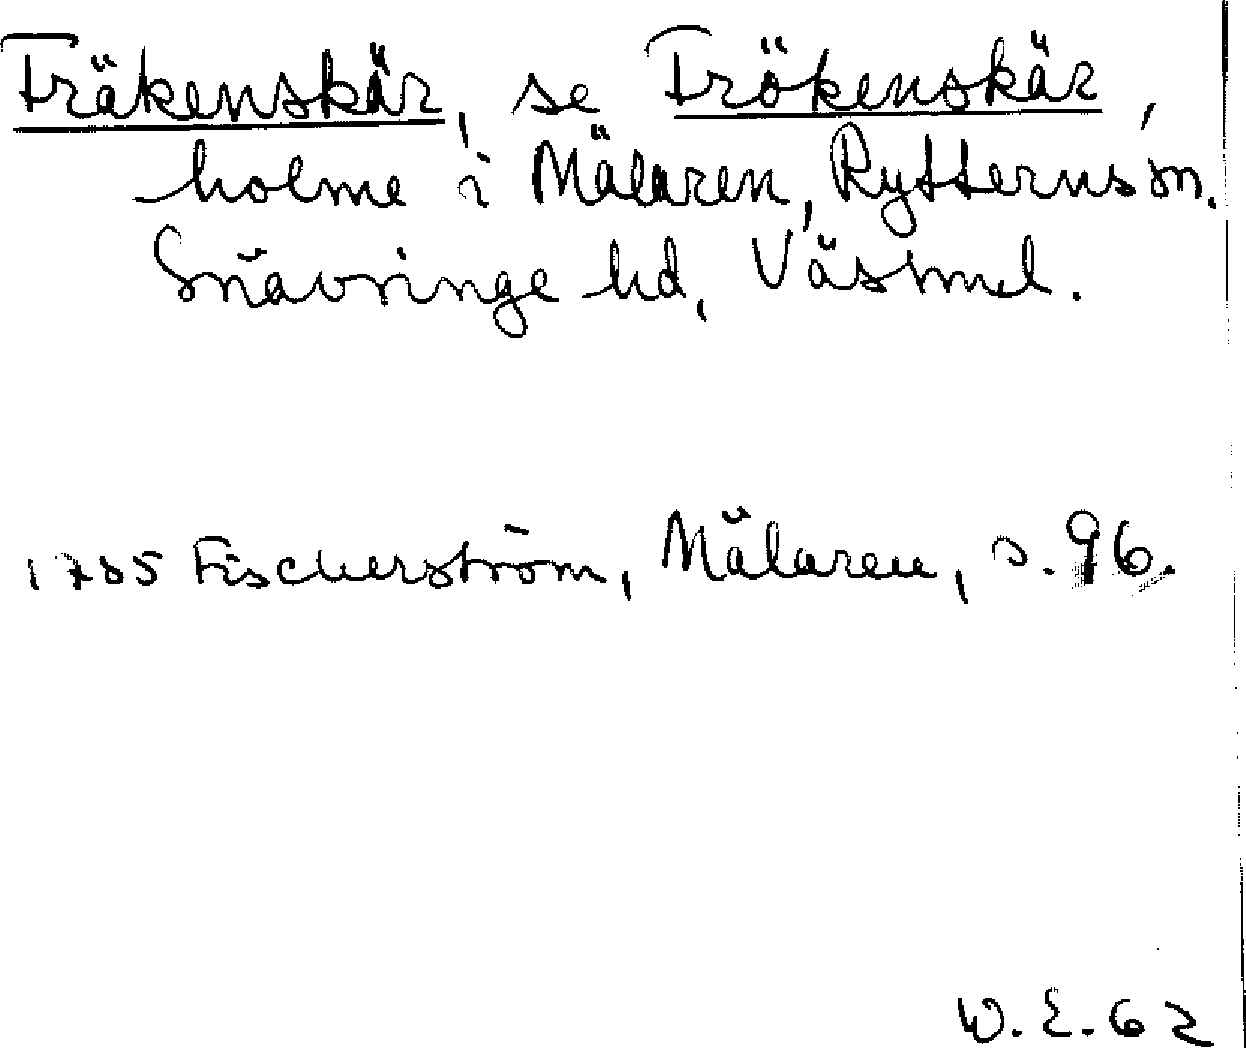 Fräkenskär, se Frökenskär,
holme i Mälaren, Rytterns sn.
Snävringe hd, Västml.
1785 Fischerström, Mälaren, s. 96.
W. E. 62